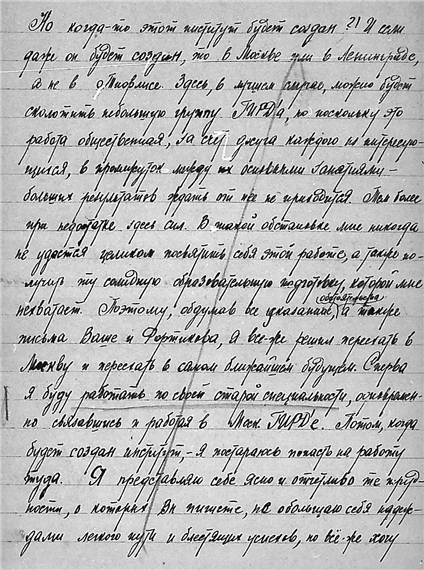 Но когда-то этот институт будет создан?! И если
даже он будет создан, то в Москве или в Ленинграде,
а не в Тбилиси. Здесь, в лучшем случае, можно будет
сколотить небольшую группу ГИРДа, но поскольку это
работа общественная, за счет досуга каждого из интересую-
щихся, в промежуток между их основными занятиями -
больших результатов ждать от нее не приходится. Тем более
при недостатке здесь сил. В такой обстановке мне никогда
не удастся целиком посвятить себя этой работе, а также по-
лучить ту солидную образовательную подготовку, которой мне
нехватает. Поэтому, обдумав все указанные обстоятельства, а также
письма Ваше и Фортикова, я все-же решил переехать в
Москву и переехать в самом ближайшем будущем. Сперва
я буду работать по своей старой специальности, одновремен-
но связавшись и работая в Моск. ГИРДе. Потом, когда
будет создан институт, - я постараюсь попасть на работу
туда. Я представляю себе ясно и отчетливо те труд-
ности, о которых Вы пишете, не обольщаю себя надеж-
дами легкого пути и блестящих успехов, но всё-же хочу